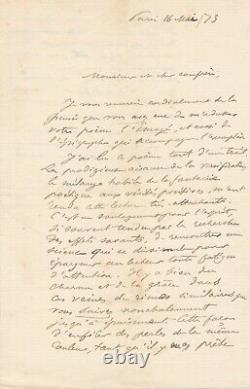 Paris 16 Mai /73
Monsieur et cher confrère,
Je vous remercie cordialement de la
pensée que vous avez eue de m'adresser
votre poëme l'Émayé, et aussi de
l'épigraphe qui accompagne l'exemplaire
J'ai lu ce poëme tout d'un trait,
La prodigieuse aisance de la versification
le mélange habile de la fantaisie
poétique aux vérités positives, m'ont
rendu cette lecture très attachante.
C'est un soulagement pour l'esprit
si souvent tendu par la recherche
des effets savants, de rencontrer une
science qui se dissimule pour
épargner au lecteur toute fatigue
d'attention. Il y a bien du
charme et de la grâce dans
ces veines de rimes similaires que
vous suivez nonchalamment
jusqu'à épuisement. Cette façon
d'enfiler des perles de la même
couleur, tant qu'il y en a, prête